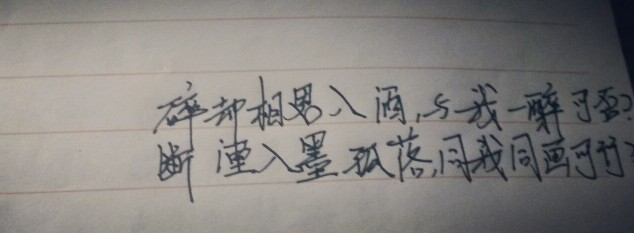 碎却相思入酒,与我一醉可否?
断 入墨孤落,同我同画可行?